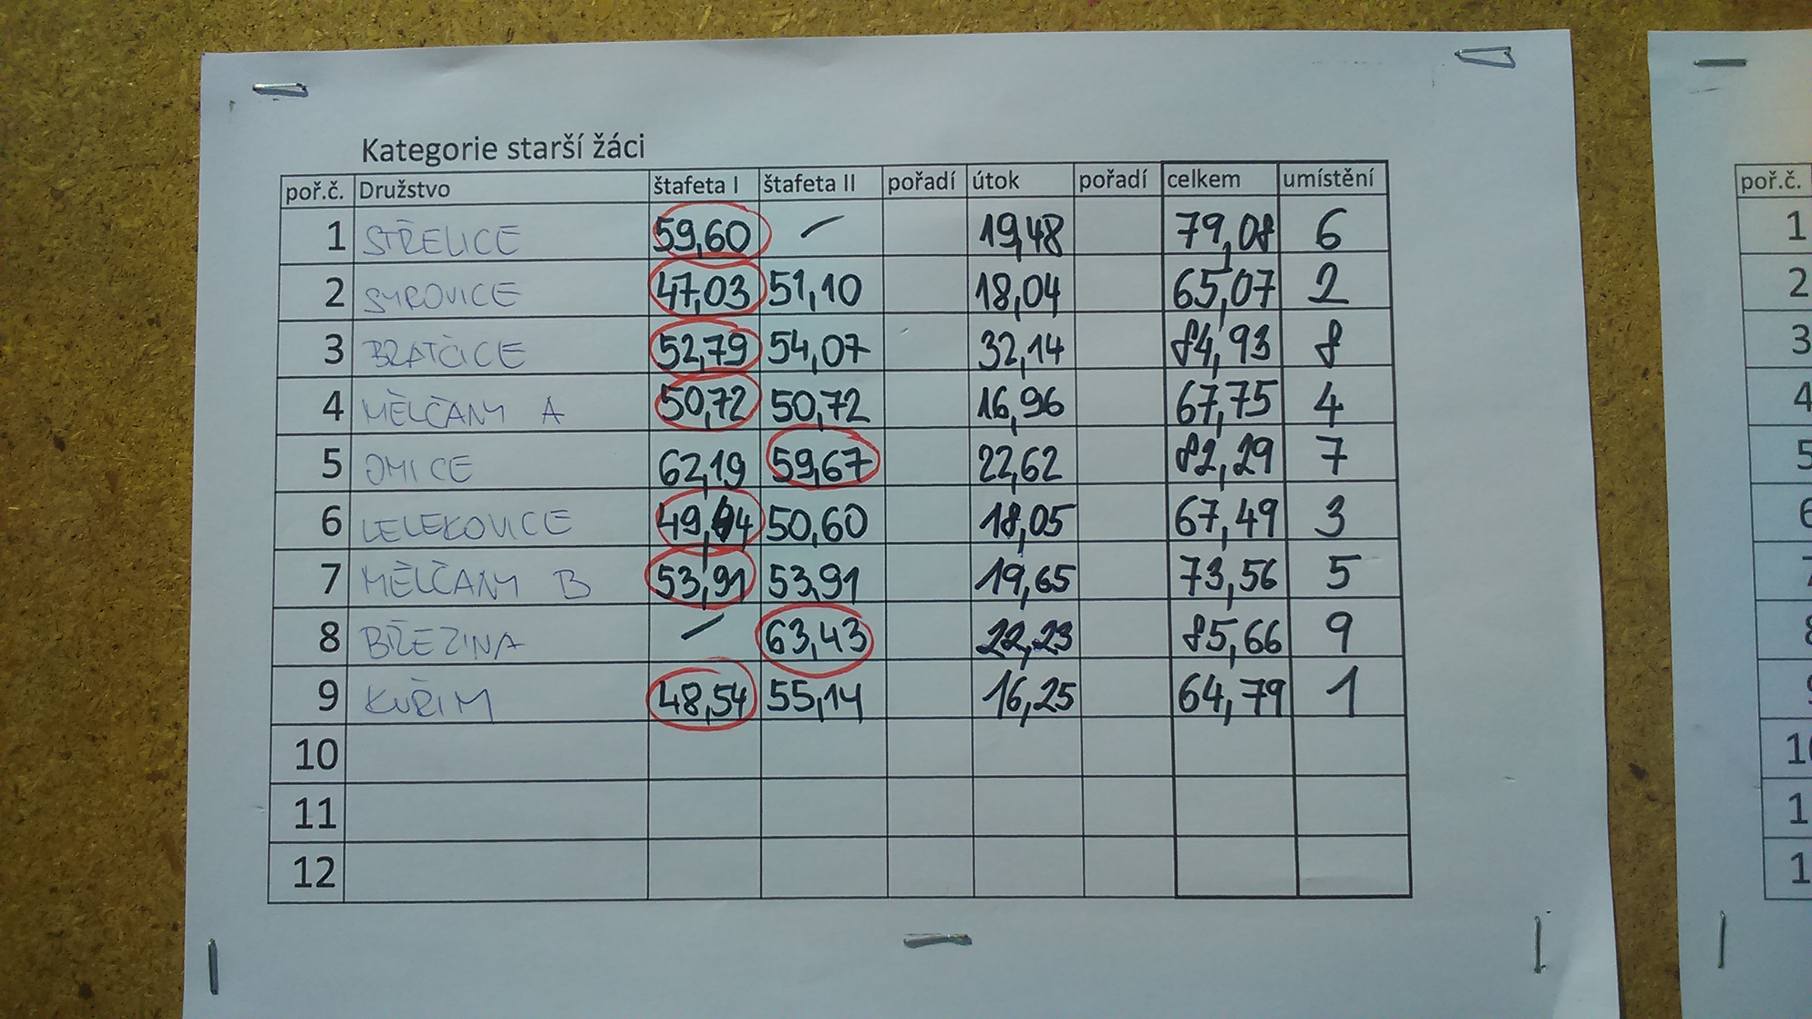 Kategorie starší žáci
poř.č. Družstvo štafeta I štafeta II pořadí útok pořadí celkem umístění
1 STŘELICE 59,60 – 19,48 79,08 6
2 SYROVICE 47,03 51,10 18,04 65,07 2
3 BRATČICE 52,79 54,07 32,14 84,93 8
4 MĚLČANY A 50,72 50,72 16,96 67,75 4
5 OMICE 62,19 59,67 22,62 82,29 7
6 LELEKOVICE 50,60 18,05 67,49 3
7 MĚLČANY B 53,91 53,91 19,65 73,56 5
8 BŘEZINA – 63,43 22,23 85,66 9
9 KUŘIM 48,54 55,14 16,25 64,79 1
10
11
12
poř.č.
1
2
3
4
5
6
7
8
9
1
1